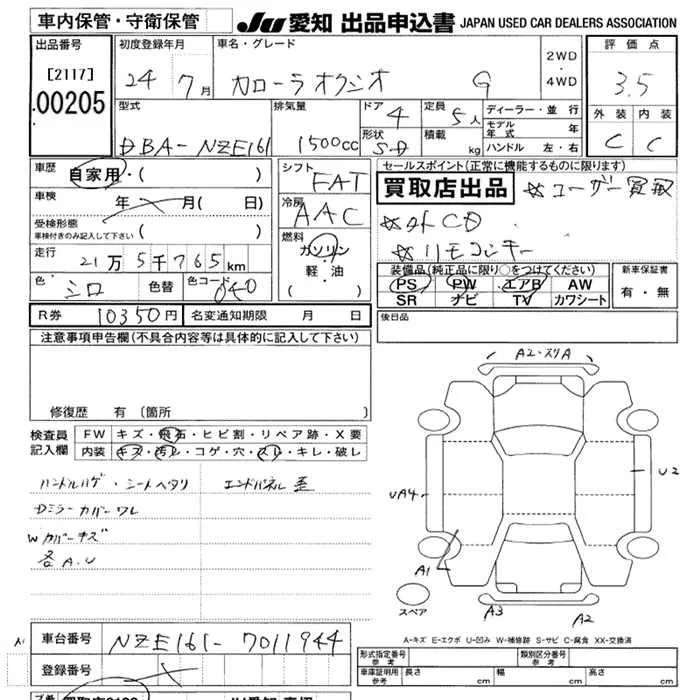 車内保管・守衛保管
JU 愛知 出品申込書 JAPAN USED CAR DEALERS ASSOCIATION
出品番号
[2117]
00205
初度登録年月
24 7月
車名・グレード
カローラ アクシオ G
2WD
・
4WD
評価点
3.5
外装 内装
C C
型式
DBA-NZE161
排気量
1500cc
ドア 4
形状 S-D
定員 5人
積載 kg
ディーラー・並行
モデル年式 年
ハンドル 左・右
車歴 自家用・( )
車検 年 月( 日)
受検形態
車検付きのみ記入して下さい ( )
走行 21万5千765km
色 シロ 色替 色コード 040
シフト
FAT
冷房
AAC
燃料
ガソリン
・
軽・油
( )
セールスポイント(正常に機能するものに限ります)
買取店出品 ☆ユーザー買取
☆外CD
☆リモコンキー
装備品(純正品に限り○をつけてください)
PS PW エアB AW
SR ナビ TV カワシート
新車保証書
有・無
R券 10350円 名変通知期限 月 日
後日品
注意事項申告欄(不具合内容等は具体的に記入して下さい)
修復歴 有 (箇所
検査員
記入欄
FW キズ・飛石・ヒビ割・リペア跡・X要
内装 キズ・汚レ・コゲ・穴・スレ・キレ・破レ
ハンドルハゲ・シートヘタリ エンドパネル歪
Dミラーカバーワレ
Wカバーキズ
各A.U
A2・スリA
UA4
U2
A1
A3
A2
スペア
A-キズ E-エクボ U-凹み W-補修跡 S-サビ C-腐食 XX-交換済
A1
車台番号 NZE161-7011944
登録番号
型式指定番号
参考
類別区分番号
参考
車庫証明用
参考
長さ cm 幅 cm 高さ cm